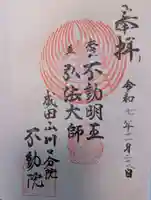 奉拝
令和七年二月二八日
不動明王
弘法大師
成田山川口分院
不動院